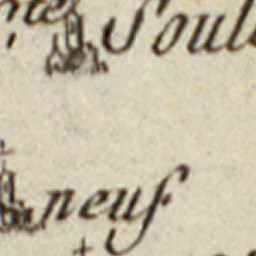 Soul
neuf